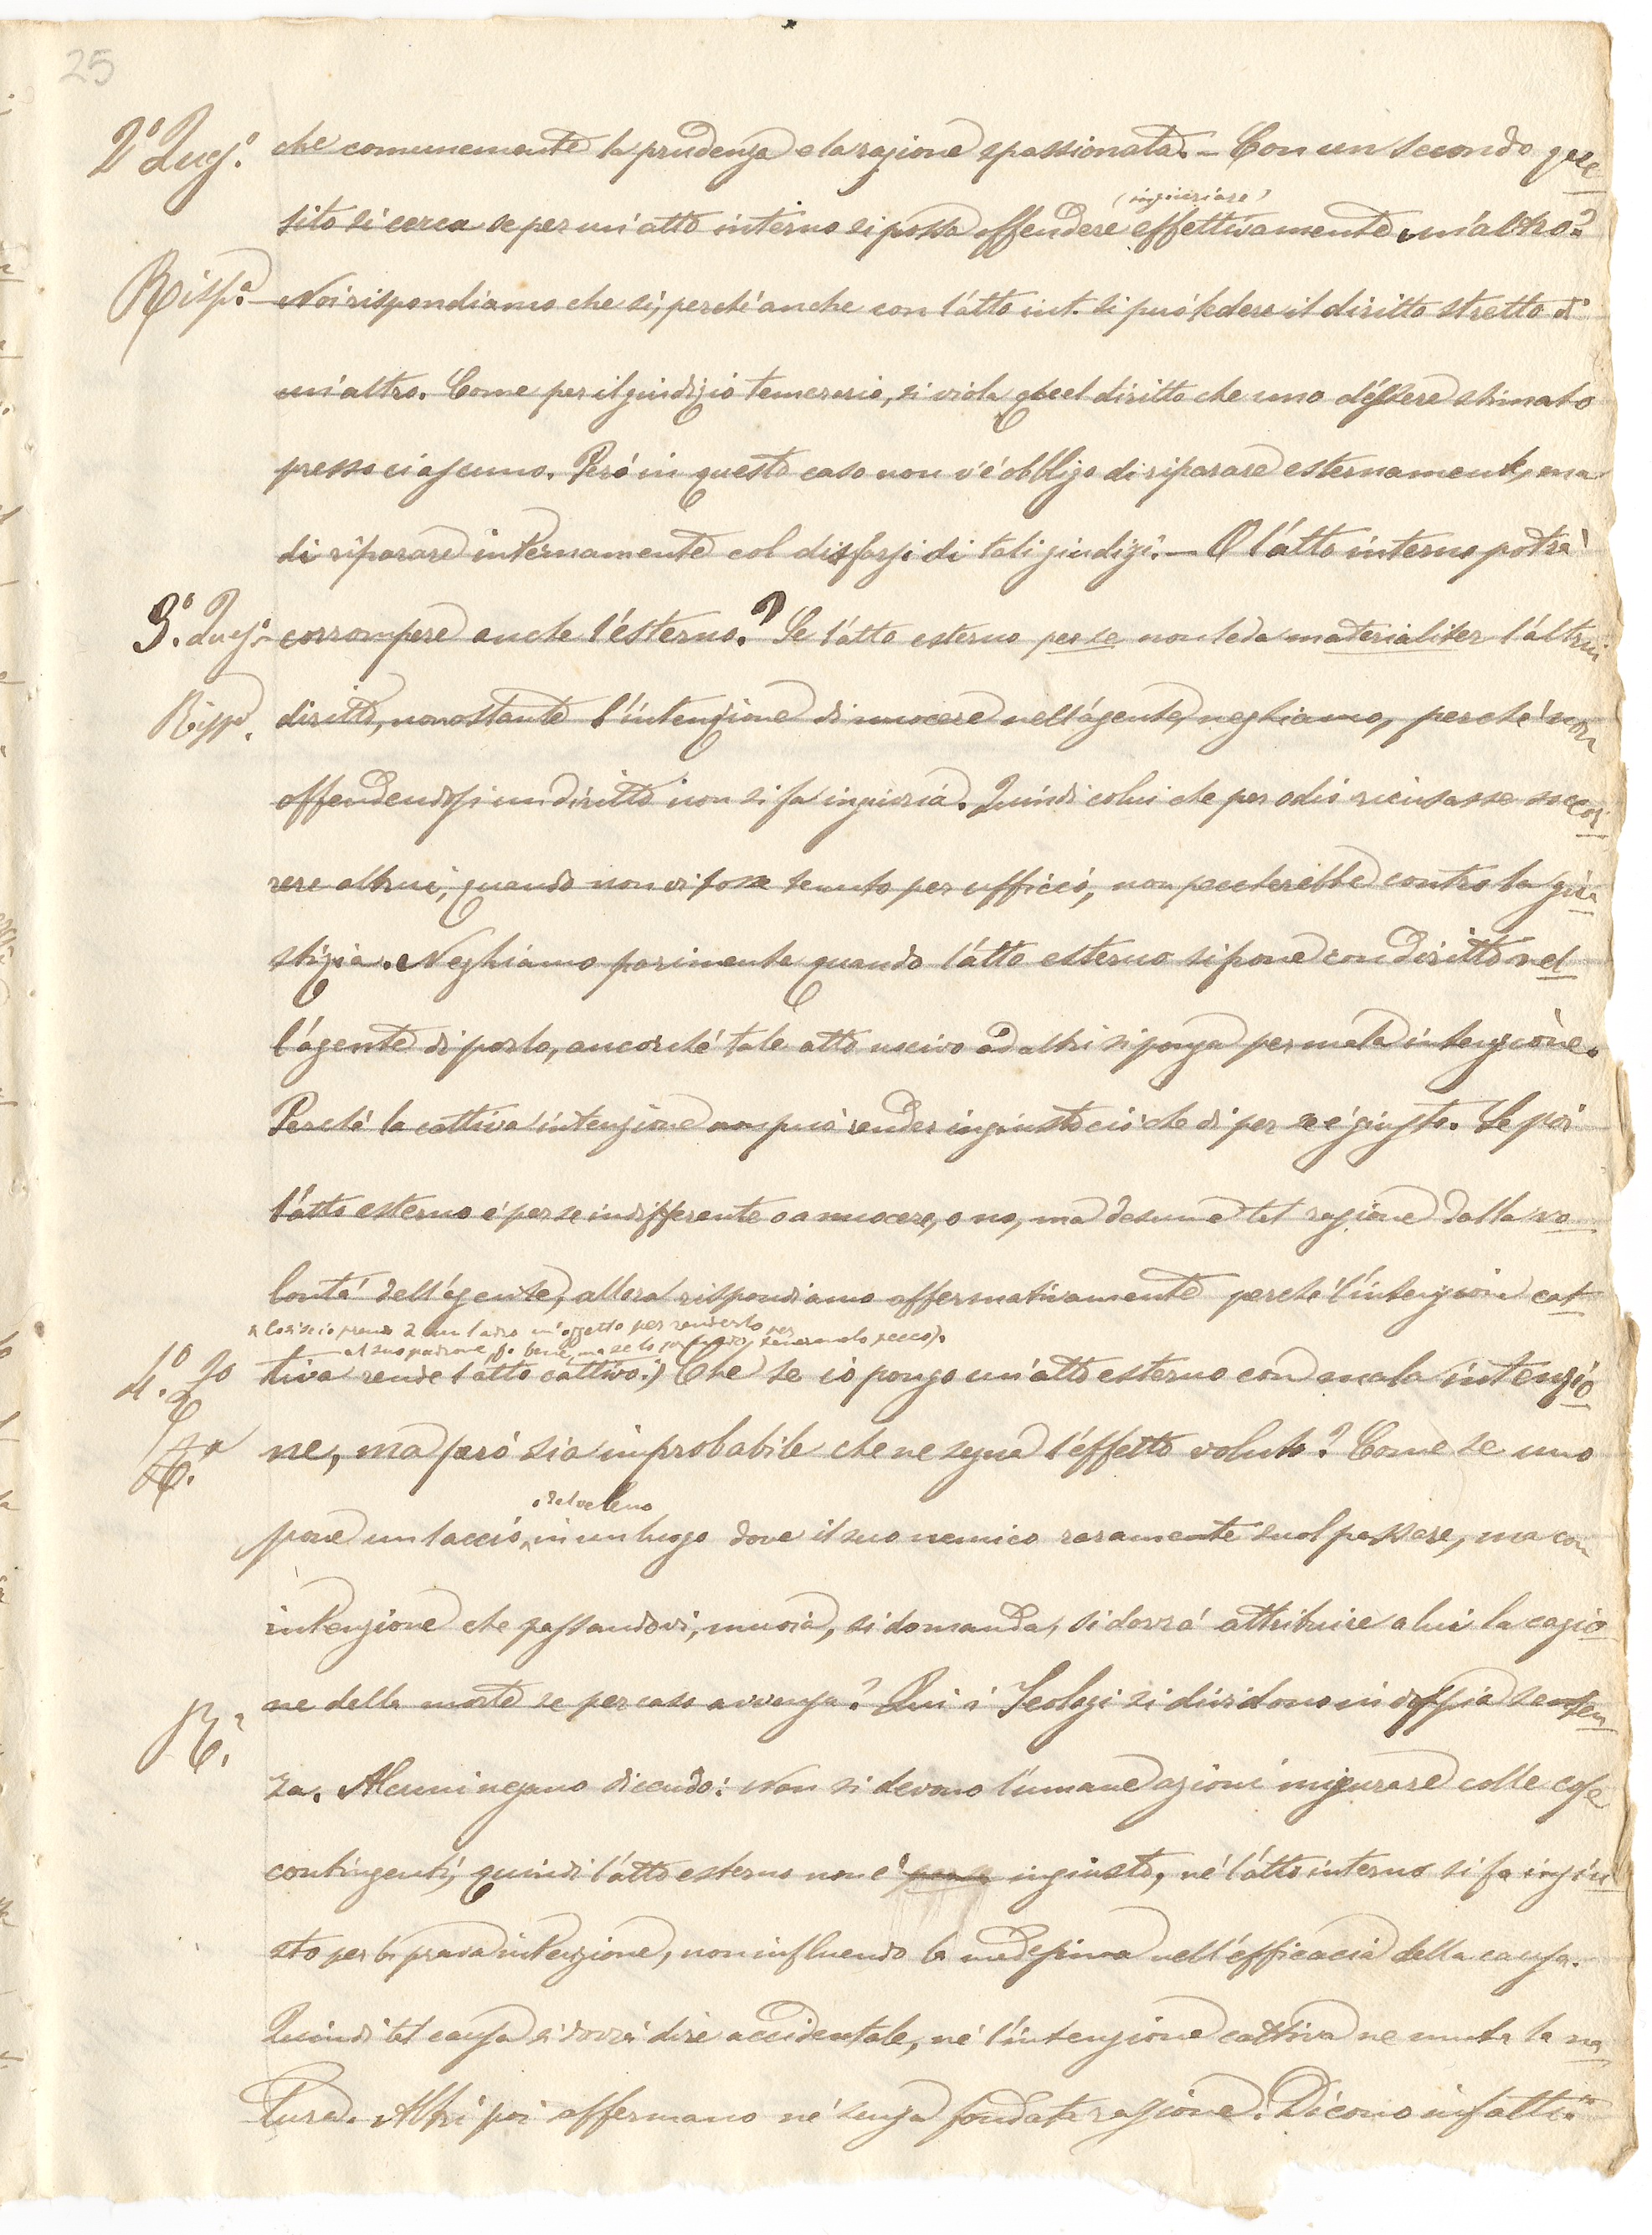 25
2º Ques.º che comunemente la prudenza e la ragione spassionata. - Con un secondo que
(ingiuriare)
sito si cerca se per un'atto interno si possa offendere effettivamente un'altro?
Rispª - Noi rispondiamo che sì, perché anche con l'atto int. si può ledere il diritto stretto di
un'altro. Come per il giudizio temerario, si viola quel diritto che uno d'essere stimato
presso ciascuno. Però in questo caso non v'è obbligo di riparare esternamente, ma
di riparare internamente col disfarsi di tali giudizi. - O l'atto interno potrà
3.º Ques.º corrompere anche l'esterno? Se l'atto esterno per se non leda materialiter l'altrui
Rispª. diritto, nonostante l'intenzione di nuocere nell'agente, neghiamo, perché non
offendendosi un diritto non si fa ingiuria. Quindi colui che per odio ricusasse soccor
rere altrui, quando non vi fosse tenuto per ufficio, non peccherebbe contro la giu
stizia. Neghiamo parimente quando l'atto esterno si pone con diritto nel
l'agente di porlo, ancorché tale atto nocivo ad altri si ponga per mala intenzione.
Perché la cattiva intenzione non può render ingiusto ciò che di per se è giusto. Se poi
l'atto esterno è per se indifferente o a nuocere, o no, ma desume tal ragione dalla vo
lontà dell'agente, allora rispondiamo affermativamente perché l'intenzion cat
Così se io prendo a un ladro un'oggetto per renderlo
al suo padrone, fo bene, ma se lo per tenermelo pecco).
4.º Qo tiva rende l'atto cattivo.) Che se io pongo un'atto esterno con mala intenzio
ne, ma però sia improbabile che ne segua l'effetto voluto? Come se uno
, del veleno
pone un laccio, in un luogo dove il suo nemico raramente suol passare, ma con
intenzione che passandovi, muoia, si domanda, si dovrà attribuire a lui la cagio
R. ne della morte se per caso avvenga? Qui i Teologi si dividono in doppia senten
za. Alcuni negano dicendo: Non si devono l'umane azioni misurare colle cose
contingenti, quindi l'atto esterno non è ingiusto, né l'atto interno si fa ingiu
sto per la prava intenzione, non influendo la medesima nell'efficacia della causa.
Quindi tal causa si dovrà dire accidentale, né l'intenzione cattiva ne muta la na
tura. Altri poi affermano né senza fondata ragione. Dicono infatti: